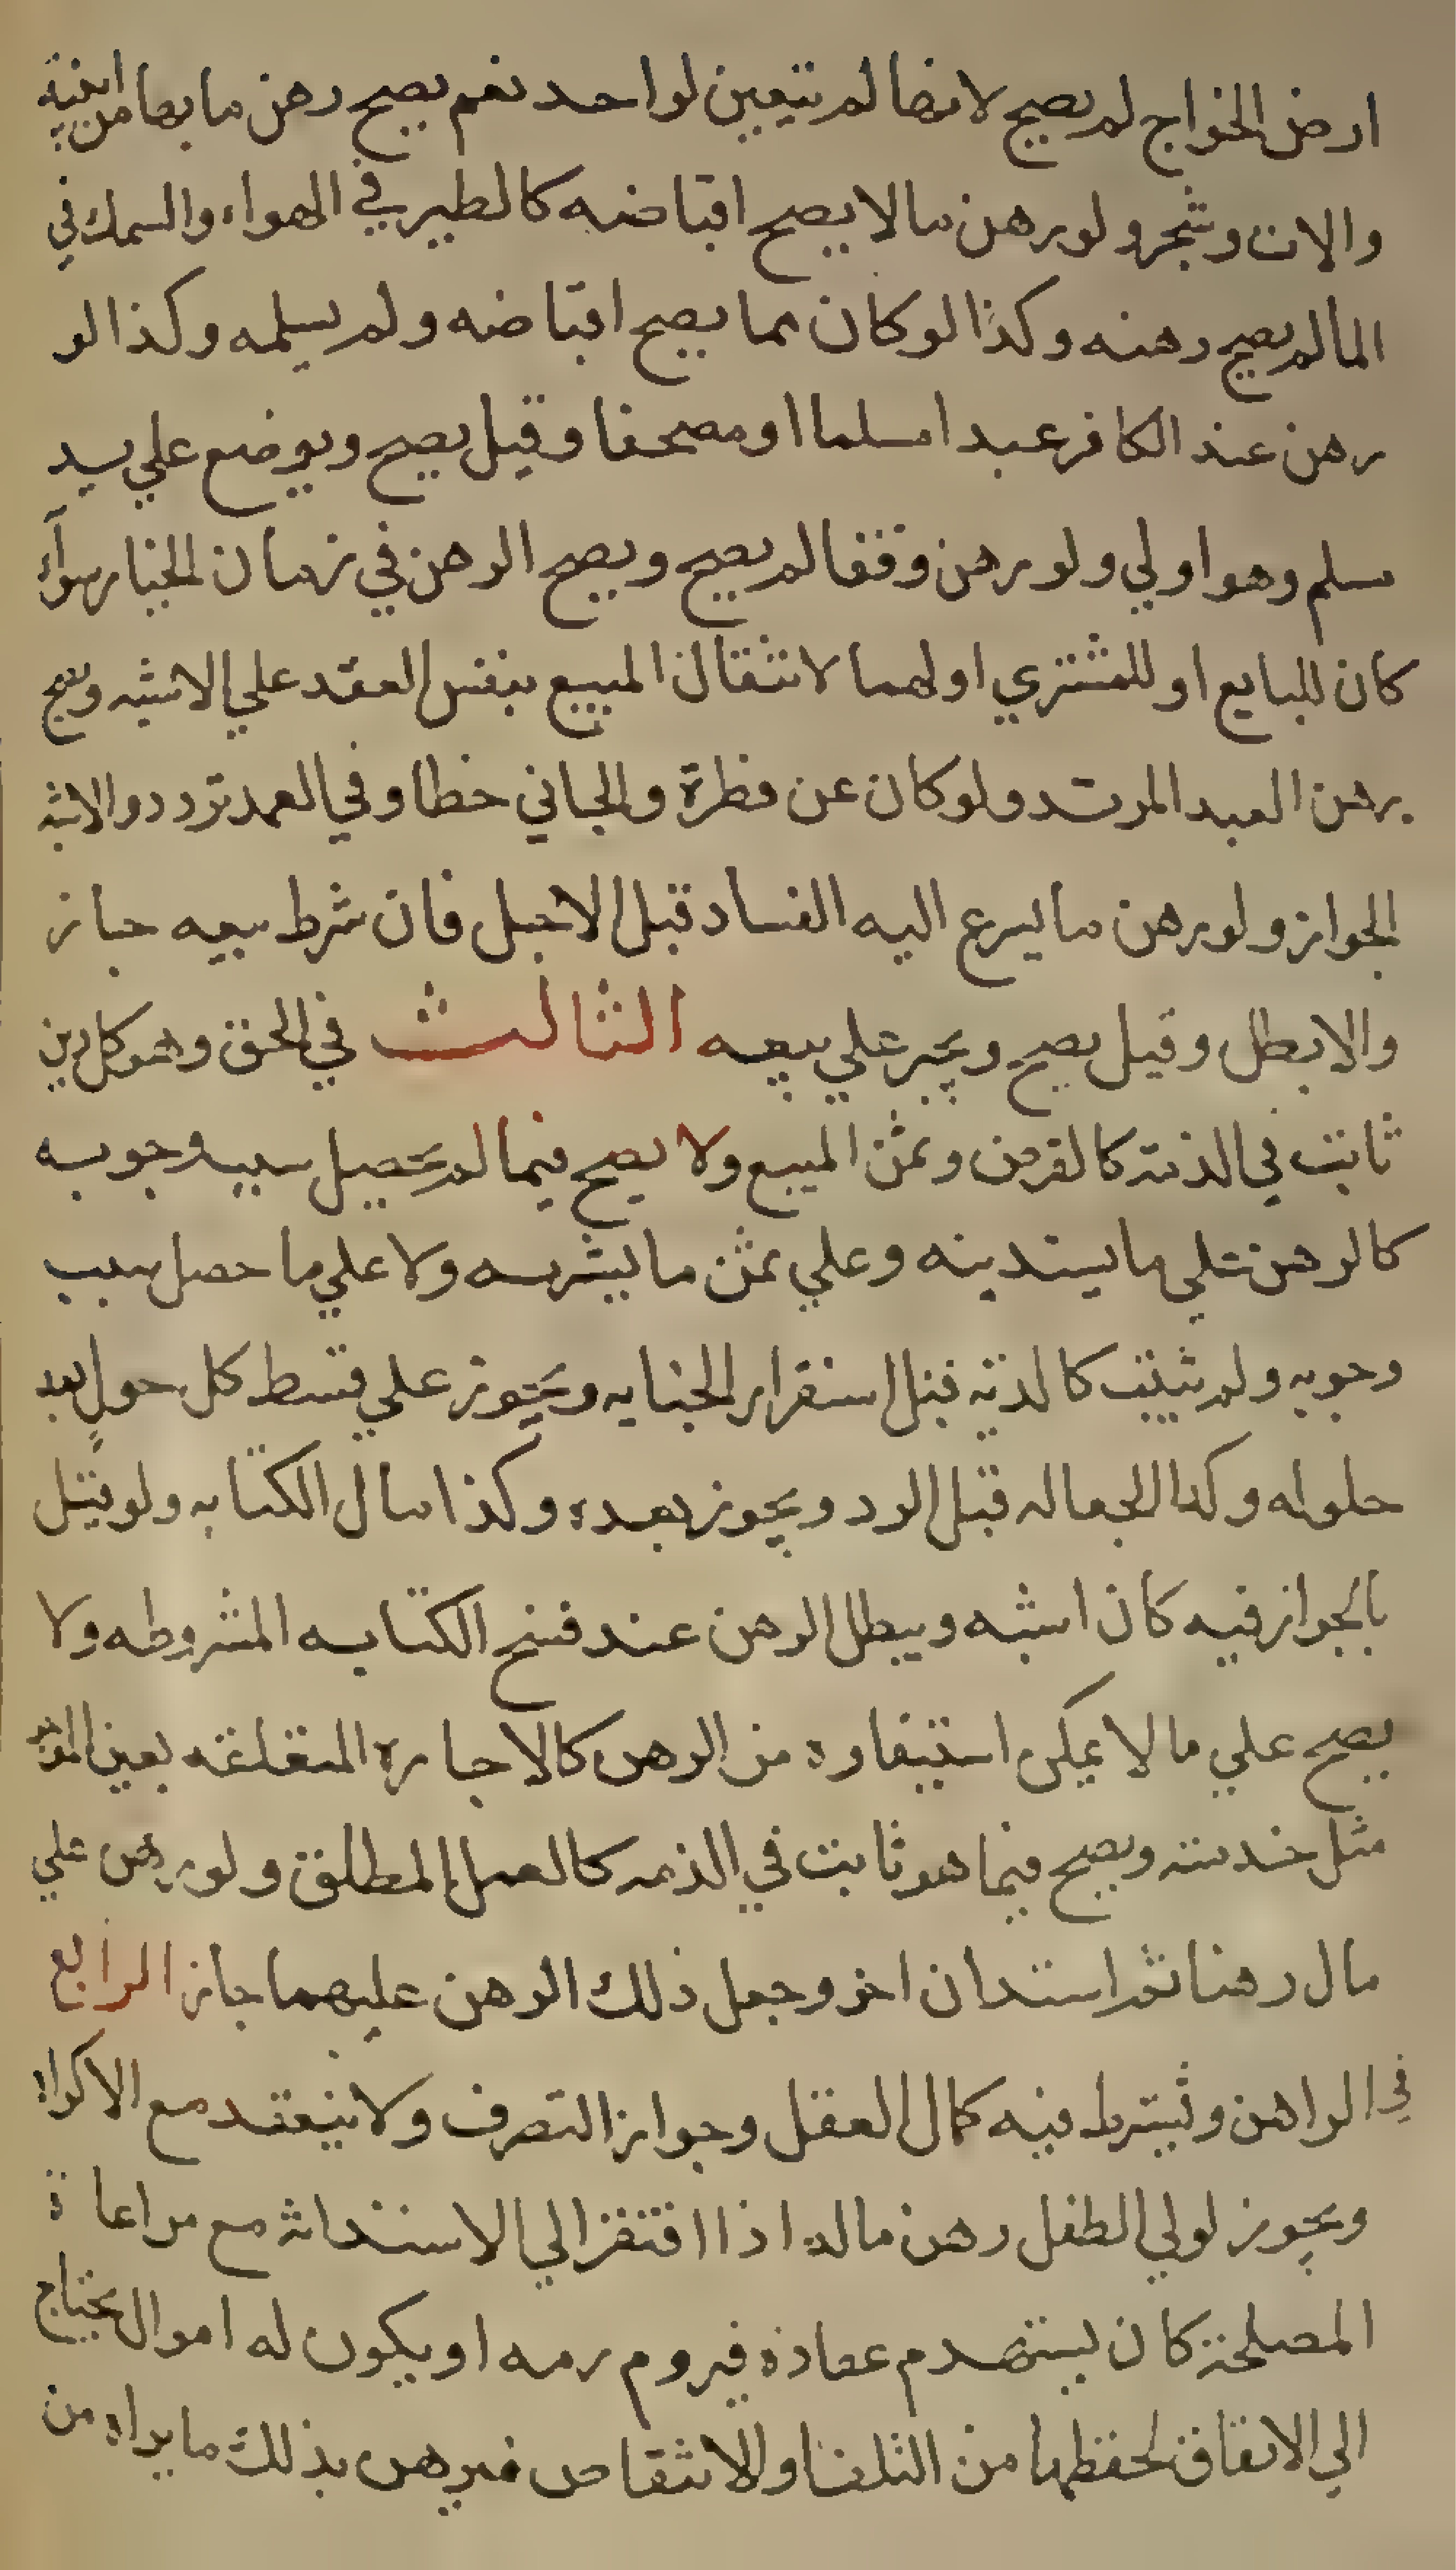 ارض الخراج لم يصح لانها لم تتعين لواحد نعم يصح رهن ما بها من ابنية
والات وشجر ولو رهن ما لا يصح اقباضه كالطير في الهواء والسمك في
الما لم يصح رهنه وكذا لو كان مما يصح اقباضه ولم يسلمه وكذا لو
رهن عند الكافر عبدا مسلما او مصحفا وقيل يصح ويوضع علي يد
مسلم وهو اولي ولو رهن وقفا لم يصح ويصح الرهن في زمان الخيار سوآء
كان للبايع او للمشتري او لهما لانتقال المبيع بنفس العقد علي الاشبه ويصح
رهن العبد المرتد ولو كان عن فطرة والجاني خطا وفي العمد تردد والاشبه
الجواز ولو رهن ما يسرع اليه الفساد قبل الاجل فان شرط بيعه جاز
والا بطل وقيل يصح ويجبر علي بيعه الثالث في الحق وهو كل دين
ثابت في الذمة كالقرض وثمن المبيع ولا يصح فيما لم يحصل سبب وجوبه
كالرهن علي ما يستدينه وعلي ثمن ما يشتريه ولا علي ما حصل سبب
وجوبه ولم يثبت كالدية قبل استقرار الجنايه ويجوز علي قسط كل حول بعد
حلوله وكذا الجعاله قبل الرد ويجوز بعده وكذا مال الكتابه ولو قيل
بالجواز فيه كان اشبه ويبطل الرهن عند فسخ الكتابه المشروطه ولا
يصح علي ما لا يمكن استيفاوه من الرهن كالاجارة المتعلقه بعين الموجر
مثل خدمته ويصح فيما هو ثابت في الذمه كالعمل المطلق ولو رهن علي
مال رهنا ثم استدان اخر وجعل ذلك الرهن عليهما جاز الرابع
في الراهن ويشترط فيه كمال العقل وجواز التصرف ولا ينعقد مع الاكراه
ويجوز لولي الطفل رهن ماله اذا افتقر الي الاستدانة مع مراعاة
المصلحة كان يستهدم عقاره فيروم رمه او يكون له اموال يحتاج
الي الانفاق لحفظها من التلف او الانتقاص فيرهن بذلك ما يراه من